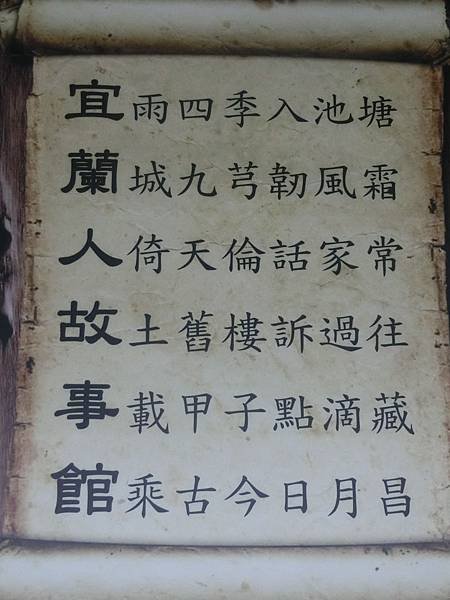 宜雨四季入池塘
蘭城九芎韌風霜
人倚天倫話家常
故土舊樓訴過往
事載甲子點滴藏
館乘古今日月昌